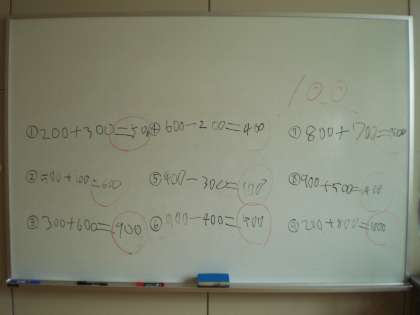 100
①200+300=500
②500+100=600
③300+600=900
④600-200=400
⑤400-300=100
⑥900-400=500
⑦800+700=1500
⑧900+500=1400
⑨200+800=1000